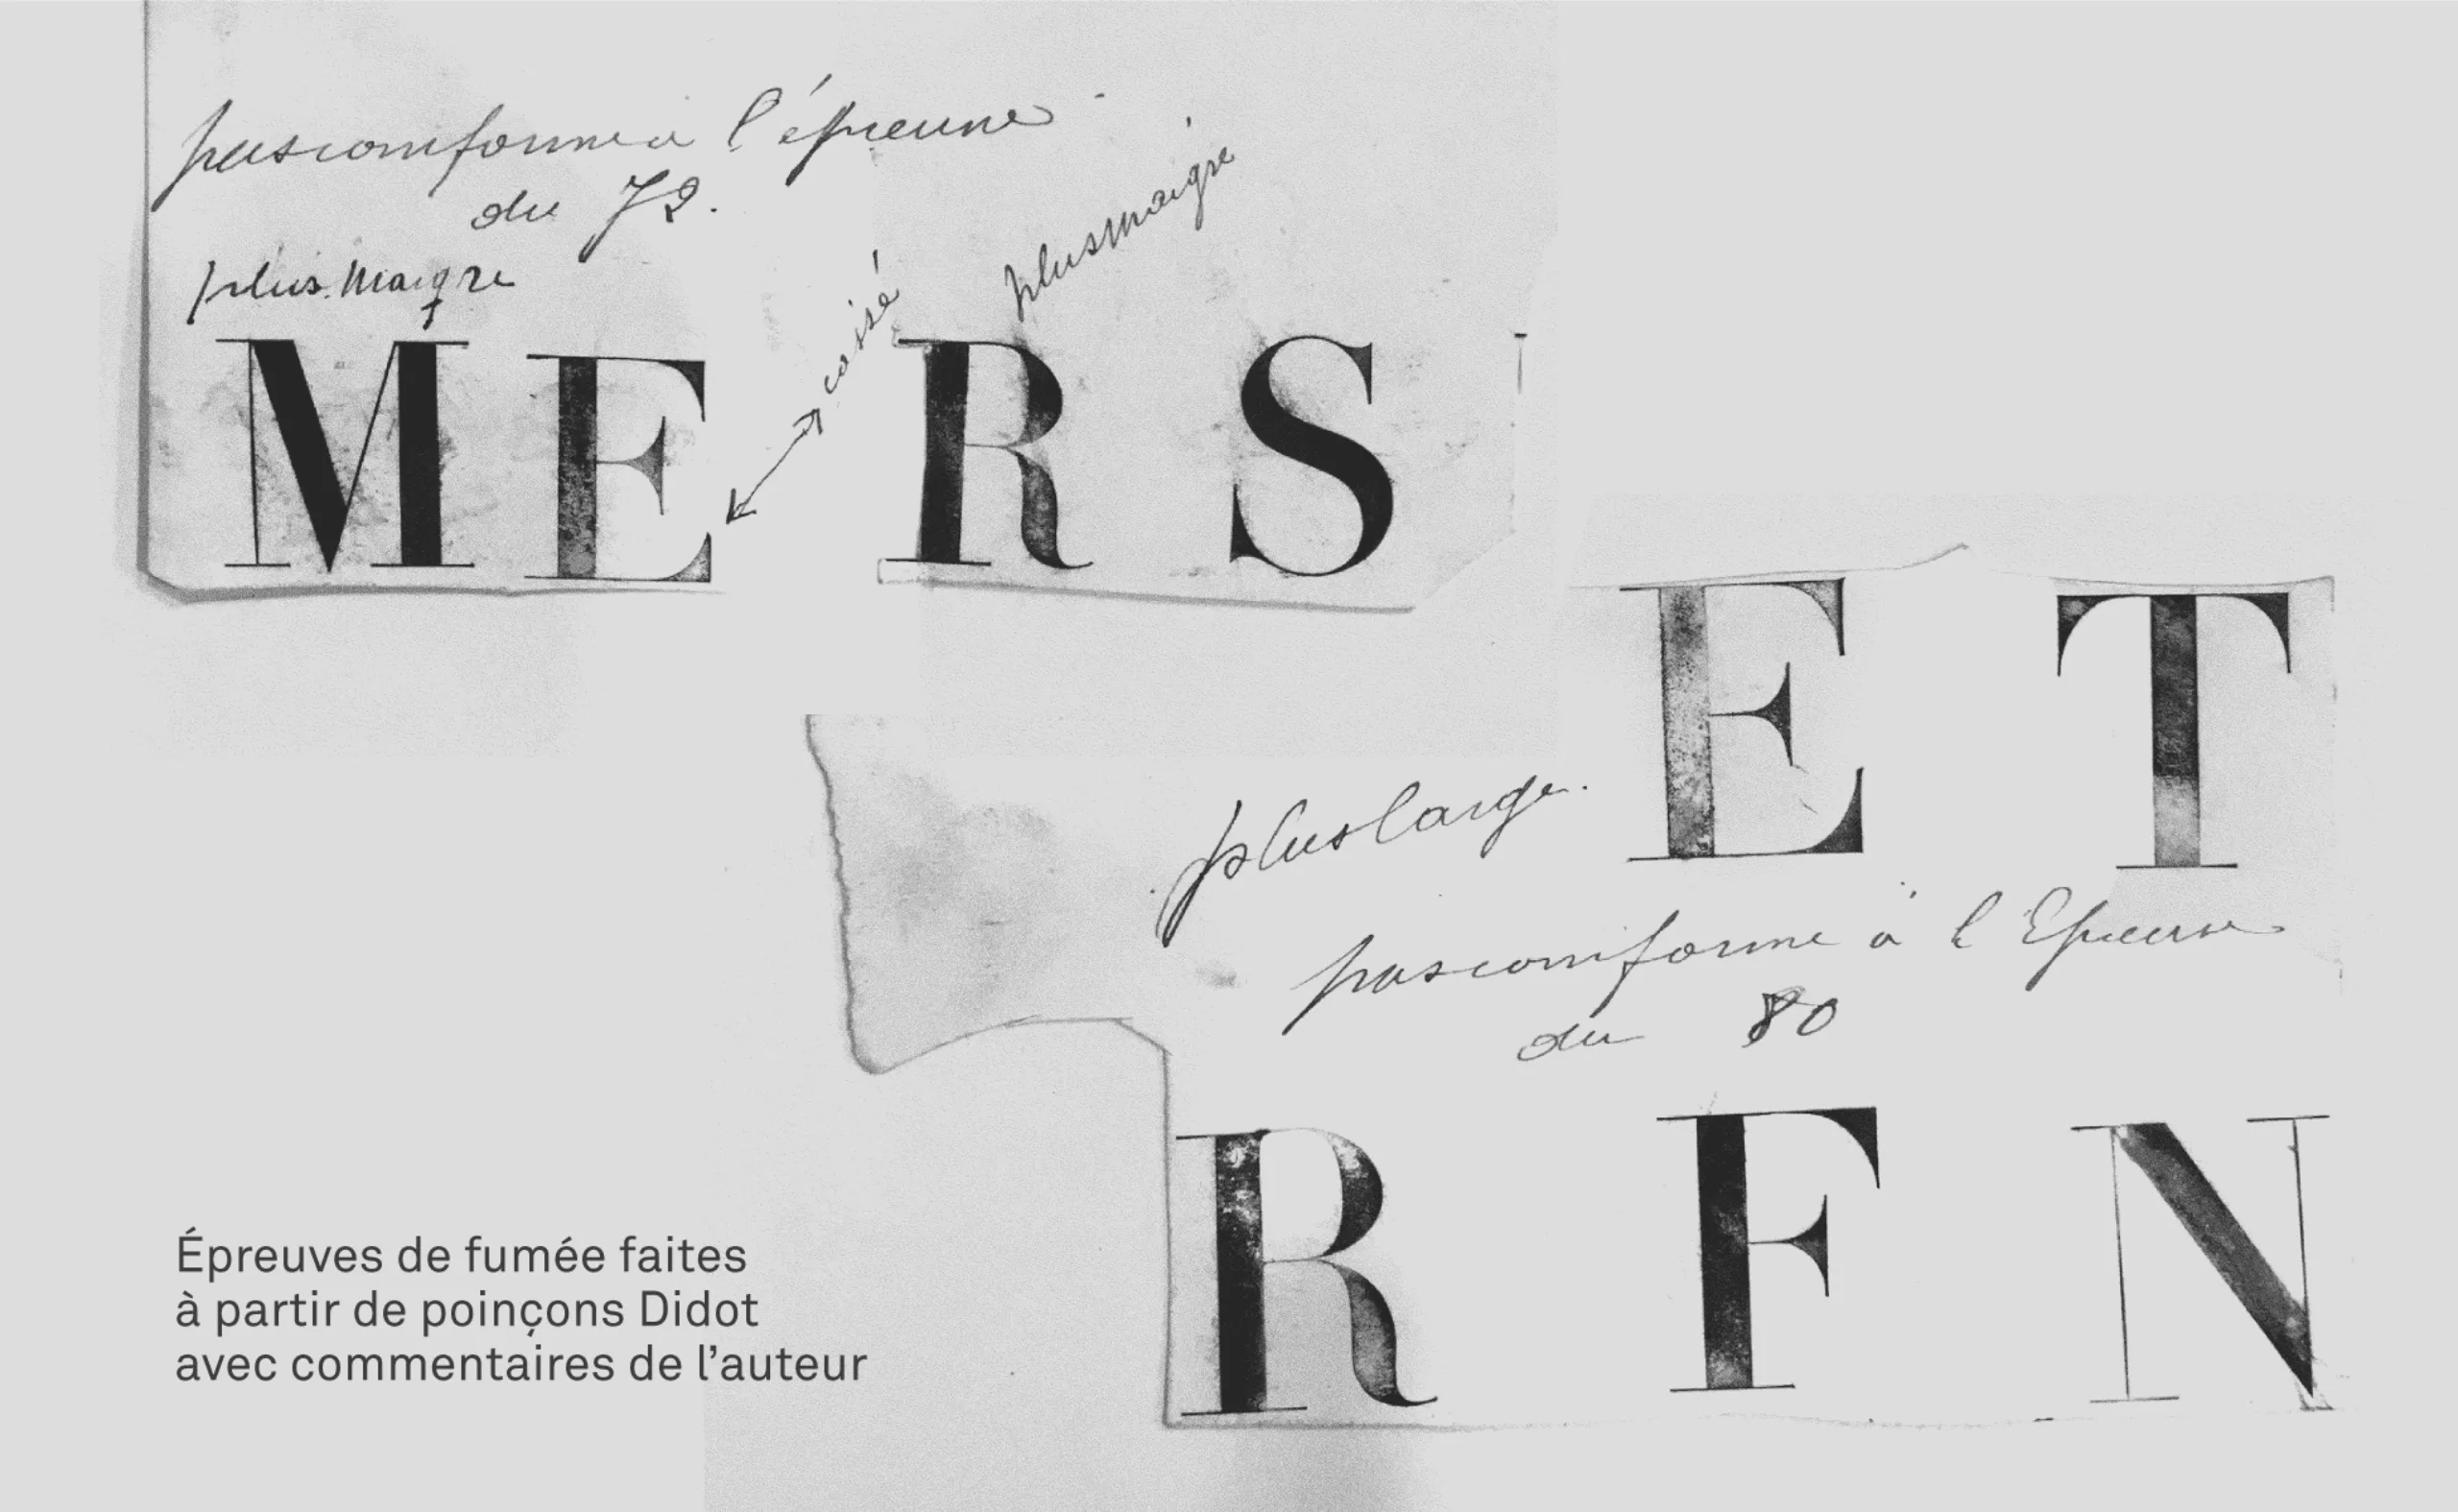 pas conforme a l'épreuve
du 72.
plus maigre
cassé
plus maigre
M E R S
E T
plus large.
pas conforme à l'Epreuve
du 80
R F N
Épreuves de fumée faites
à partir de poinçons Didot
avec commentaires de l’auteur